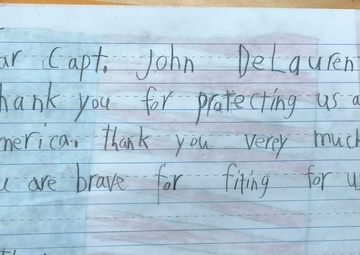 ar Capt. John DeLauren
hank you for pratecting us a
merica. thank you verey much
u are brave for fiting for u